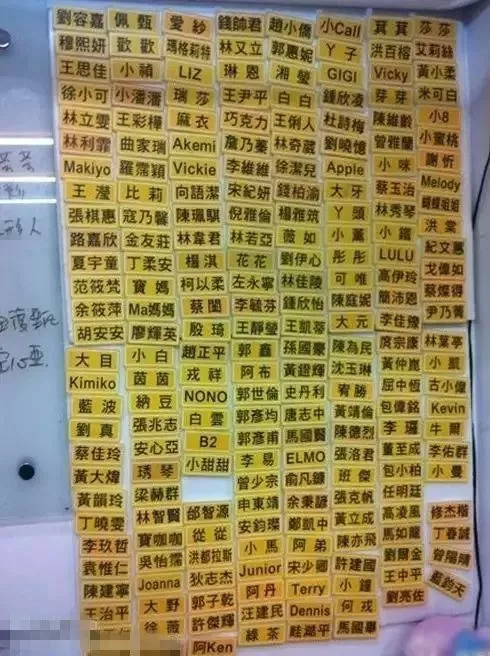 劉容嘉 佩甄 愛紗 錢帥君 趙小僑 小Call 萁萁 莎莎
穆熙妍 歡歡 瑪格莉特 林又立 郭惠妮 丫子 洪百榕 艾莉絲
王思佳 小禎 LIZ 琳恩 湘瑩 GIGI Vicky 黃小柔
徐小可 小潘潘 瑞莎 王尹平 白白 鍾欣凌 芽芽 米可白
林立雯 王彩樺 麻衣 巧克力 王俐人 杜詩梅 陳維齡 小8
林利霏 曲家瑞 Akemi 詹乃蓁 林奇葳 劉曉憶 曾雅蘭 小蜜桃
Makiyo 羅霈穎 Vickie 李維維 徐潔兒 Apple 小咪 謝忻
王瀅 比莉 向語潔 宋紀妍 錢柏渝 大牙 蔡玉治 Melody
張棋惠 寇乃馨 陳珮騏 倪雅倫 楊雅筑 丫頭 林秀琴 蝴蝶姐姐
路嘉欣 金友莊 林韋君 林若亞 薇如 小薰 小鐵 洪棠
夏宇童 丁柔安 楊淇 花花 劉伊心 彤彤 LULU 紀文惠
范筱梵 寶媽 柯以柔 左永寧 林佳陵 可唯 高伊玲 戈偉如
余筱萍 Ma媽媽 蔡閨 李毓芬 鍾欣怡 陳庭妮 簡沛恩 蔡燦得
胡安安 廖輝英 殷琦 王靜瑩 王凱蒂 大元 李佳豫 尹乃菁
大目 小白 趙正平 郭鑫 孫國豪 陳為民 庹宗康 林葉亭
Kimiko 茵茵 戎祥 阿布 黃鐙輝 沈玉琳 黃仲崑 小凱
藍波 納豆 NONO 郭世倫 史丹利 宥勝 屈中恆 古小偉
劉真 張兆志 白雲 郭彥均 唐志中 黃靖倫 包偉銘 Kevin
蔡佳玲 安心亞 B2 郭彥甫 馬國賢 陳德烈 李㼈 牛爾
黃大煒 琇琴 小甜甜 李易 ELMO 張洛君 董至成 李佑群
黃韻玲 梁赫群 曾少宗 俞凡鏞 班傑 包小柏 小曼
丁曉雯 林智賢 邰智源 申東靖 余秉諺 張克帆 任明廷
李玖哲 寶咖咖 從從 安鈞璨 鄭凱中 黃立成 高凌風 修杰楷
袁惟仁 吳怡霈 洪都拉斯 小馬 阿弟 陳亦飛 馬如龍 丁春誠
陳建寧 Joanna 狄志杰 Junior 宋少卿 許建國 劉爾金 曾陽晴
王治平 大野 郭子乾 阿丹 Terry 小鐘 王中平 藍鈞天
徐薇 許傑輝 汪建民 Dennis 何戎 劉亮佐
阿Ken 綠茶 眭澔平 馬國畢